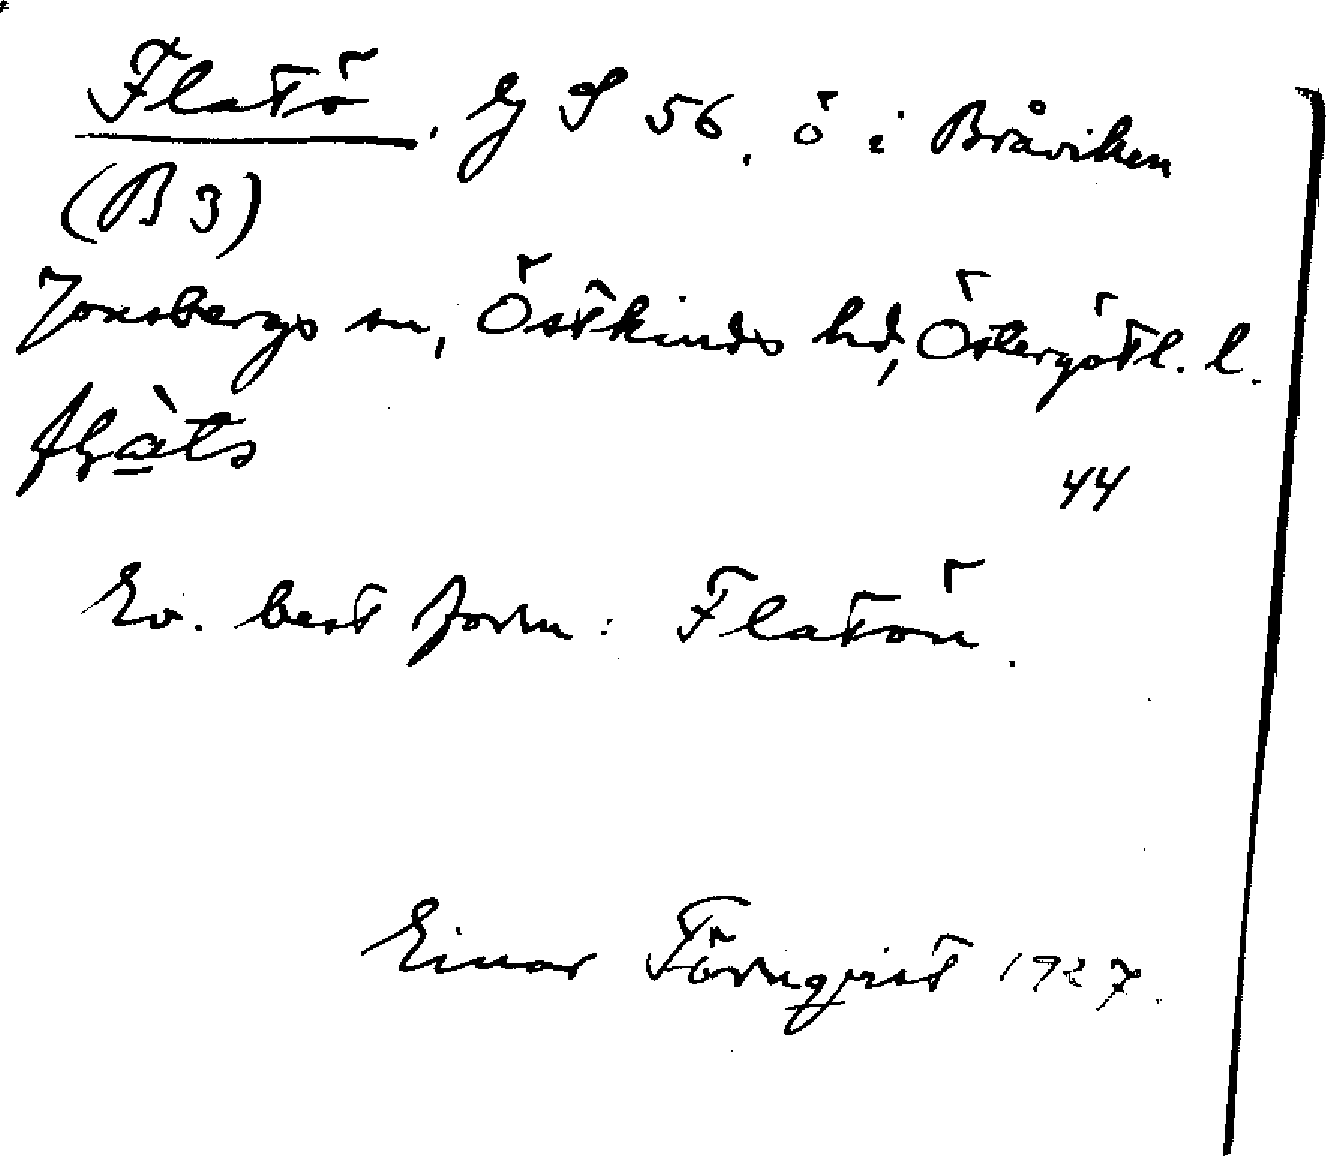 Flatö. Ej S 56, ö i Bråviken
(B 3)
Jonsbergs sn, Östkinds hd, Östergötl. l.
44
Ev. best form: Flatön.
Einar Törnqvist 1927.